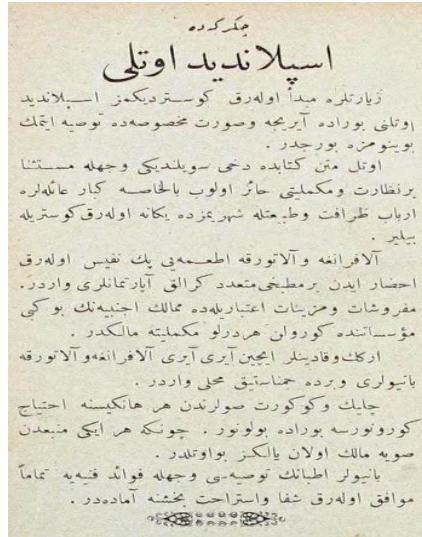 چكركه‌ده
اسپلانديد اوتلى
زيارتلره مبدأ اوله‌رق كوسترديكمز اسپلانديد
اوتلنى بوراده آيريجه وصورت مخصوصه‌ده توصيه ايتمك
بوينومزه بورجدر .
اوتل متن كتابده دخى سويلنديكى وجهله مستثنا
برنظارت ومكمليتى حائز اولوب بالخاصه كبار عائله‌لره
ارباب ظرافت وطبيعتله شهريمزده يكانه اوله‌رق كوستريله
بيلير .
آلافرانغه وآلاتورقه اطعمه‌يى پك نفيس اوله‌رق
احضار ايدن برمطبخى متعدد كرالق آپارتمانلرى واردر .
مفروشات ومزينات اعتباريله‌ده ممالك اجنبيه‌نك بو كبى
مؤسساتنده كورولن هردرلو مكمليته مالكدر .
اركك وقادينلر ايچين آيرى آيرى آلافرانغه وآلاتورقه
بانيولرى وبرده جمناستيق محلى واردر .
چليك وكوكورت صولرندن هر هانكيسنه احتياج
كورونورسه بوراده بولونور . چونكه هر ايكى منبعدن
صويه مالك اولان يالكز بواوتلدر .
بانيولر اطبانك توصيه‌سى وجهله فوائد فنيه‌يه تماماً
موافق اوله‌رق شفا واستراحت بخشنه آماده‌در .